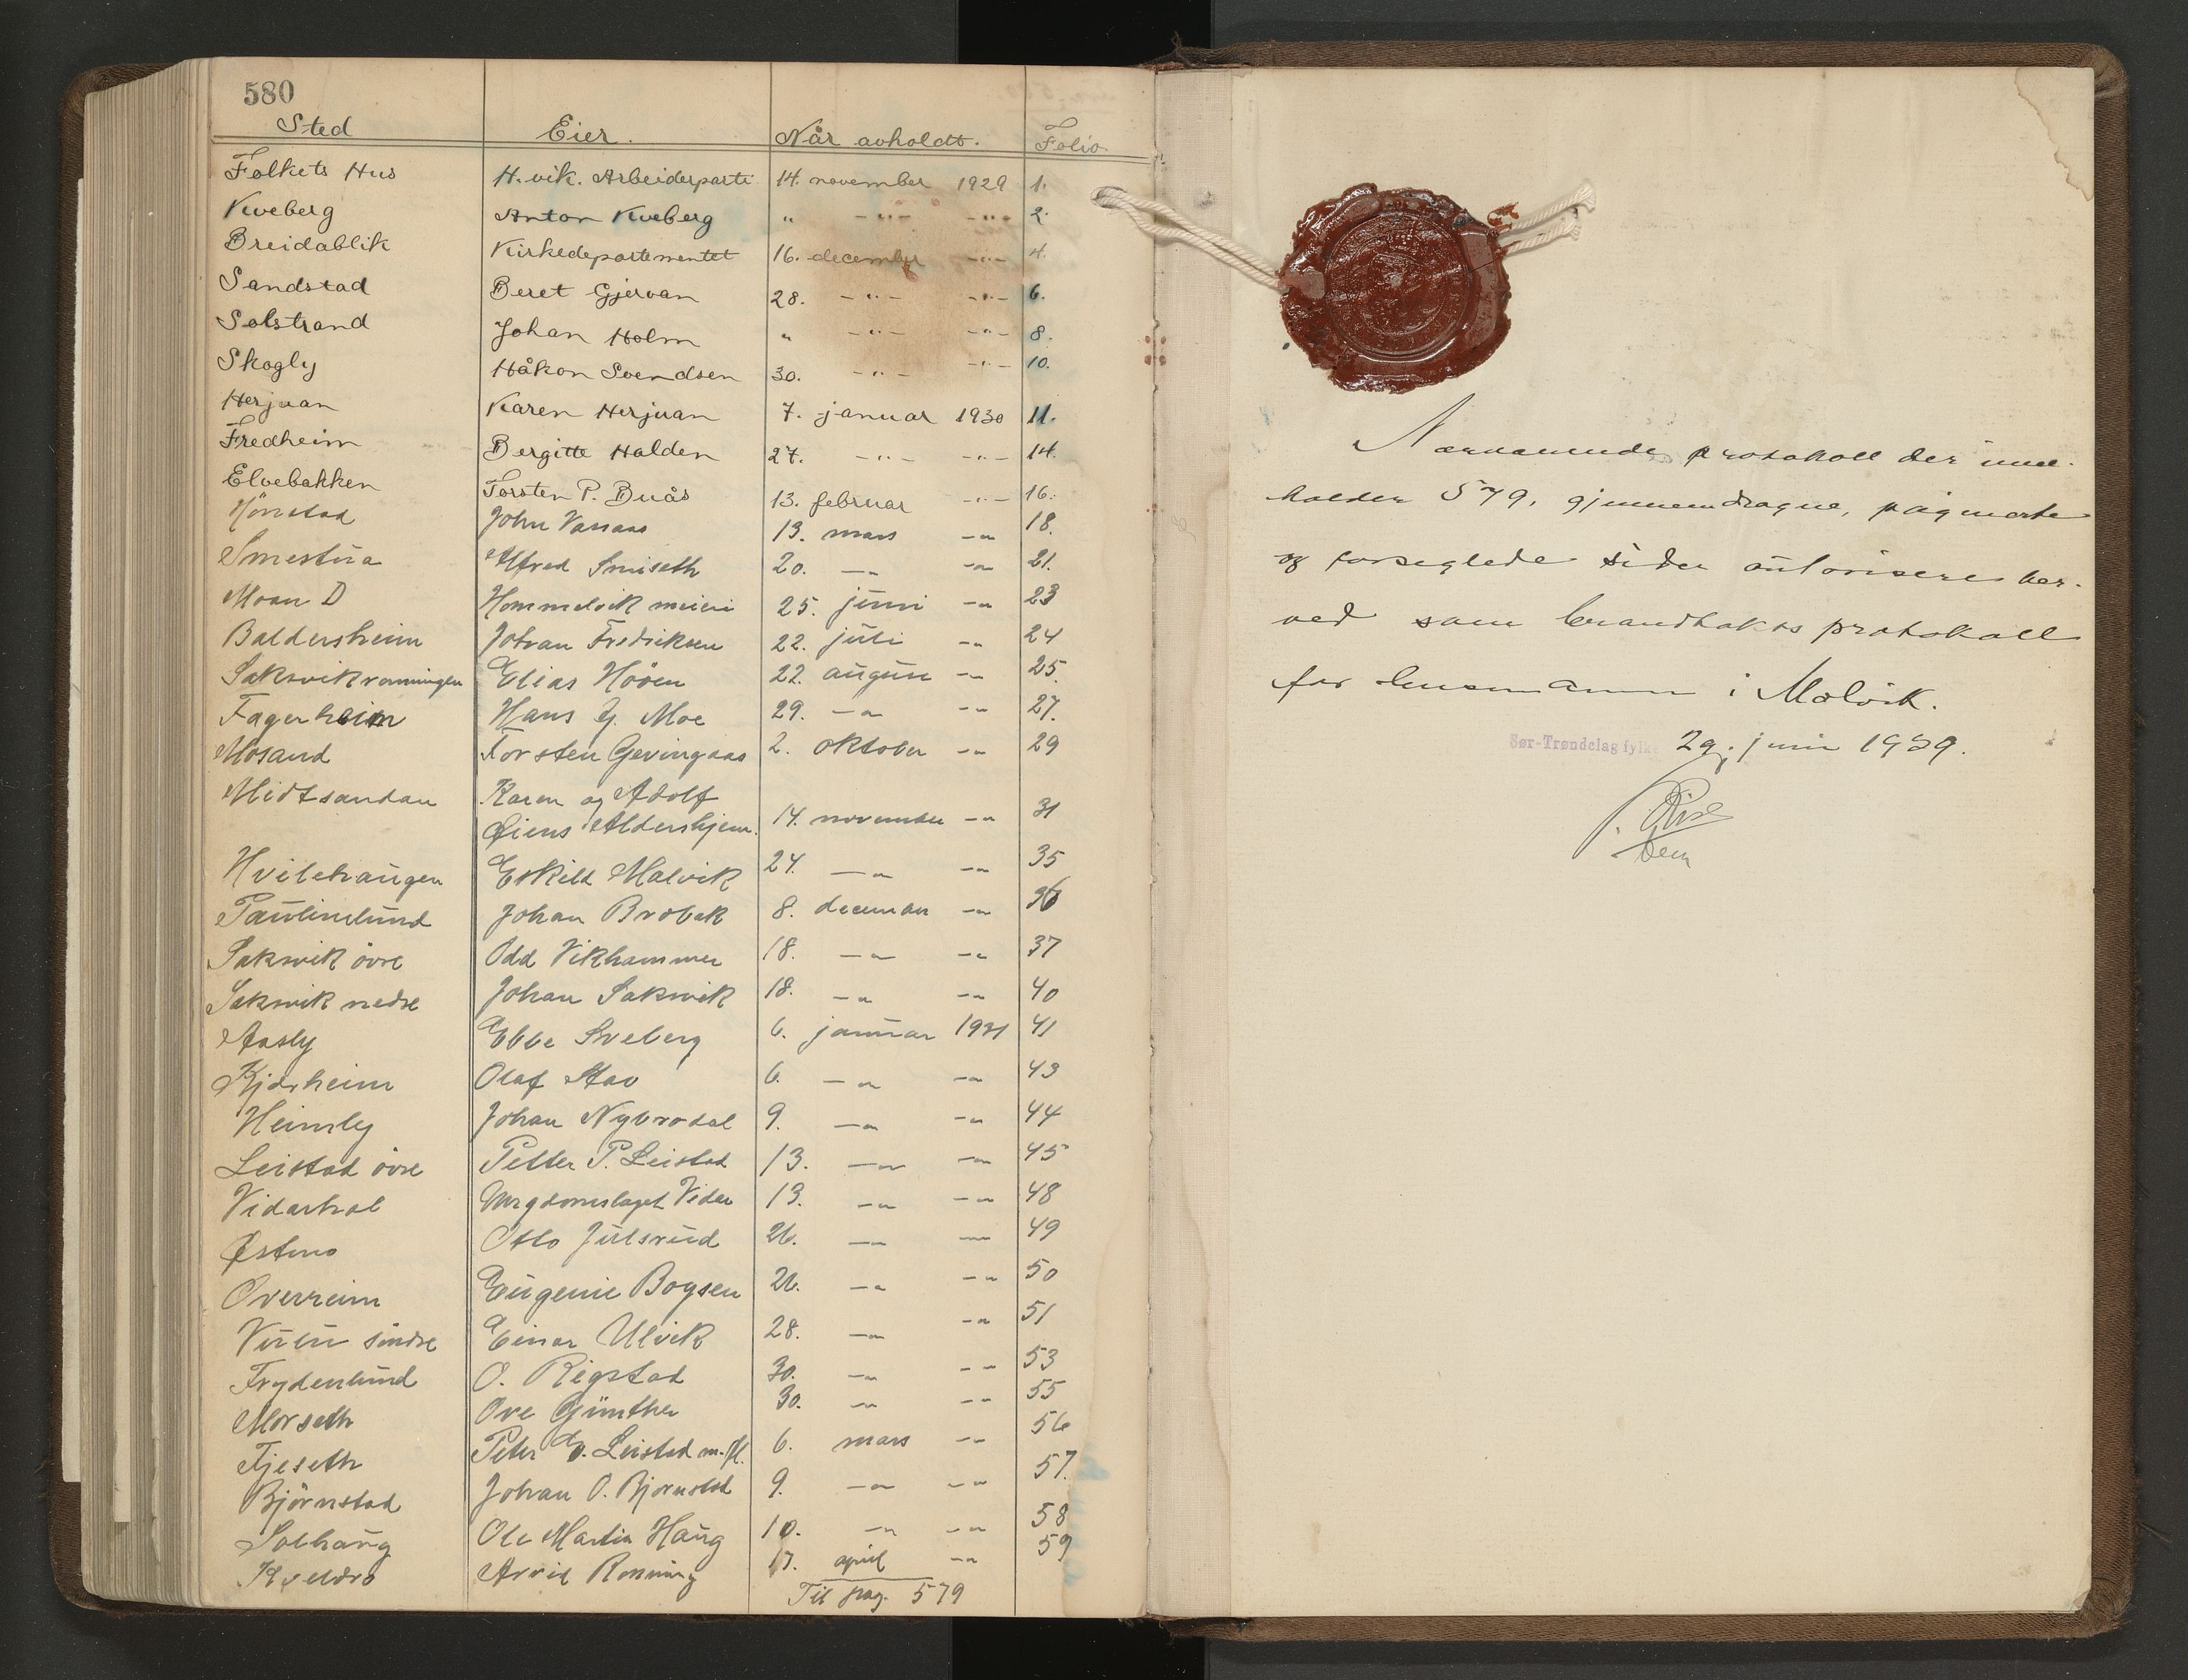 580
Sted Eier. Når avholdt. Folio
Folkets Hus H.vik. Arbeiderparti 14. november 1929 1.
Kveberg Anton Kveberg " -"- -"- 2.
Breidablik Kirkedepartementet 16. december -"- 4.
Sandstad Beret Gjervan 28. -"- -"- 6.
Solstrand Johan Holm " -"- -"- 8.
Skogly Håkon Svendsen 30. -"- -"- 10.
Herjuan Karen Herjuan 7. januar 1930 11.
Fredheim Bergitte Halden 27. -"- -"- 14.
Elvebakken Torsten P. Buås 13. februar -"- 16.
Hönstad John Vanaas 13. mars -"- 18.
Smestua Alfred Smiseth 20. -"- -"- 21.
Moan D Hommelvik meieri 25. juni -"- 23
Baldersheim Johan Fredriksen 22. juli -"- 24
Saksvikrönningen Elias Hööen 22. august -"- 25.
Fagerheim Hans J. Moe 29. -"- -"- 27.
Mosand Torsten Gevingaas 2. oktober -"- 29
Midtsandan Karen og Adolf
Öiens Aldershjem. 14. november -"- 31
Hvilehaugen Eskild Malvik 24. -"- -"- 35
Paulinelund Johan Brobak 8. december -"- 36
Saksvik övre Odd Vikhammer 18. -"- -"- 37
Saksvik nedre Johan Saksvik 18. -"- -"- 40
Aasly Ebbe Sveberg 6. januar 1931 41
Kjærheim Olaf Stav 6. -"- -"- 43
Heimly Johan Nybrodal 9. -"- -"- 44
Leistad övre Petter P. Leistad 13. -"- -"- 45
Vidarhal Ungdomslaget Vidar 13. -"- -"- 48
Østmo Otto Julsrud 26. -"- -"- 49
Overreim Eugenie Boysen 26. -"- -"- 50
Viren söndre Einar Ulvik 28. -"- -"- 51
Frydenlund O. Rigstad 30. -"- -"- 53
Morseth Ove Günther 30. -"- -"- 55
Fjeseth Peter O. Leistad m.fl. 6. mars -"- 56
Björnstad Johan O. Bjørnstad 9. -"- -"- 57.
Solhaug Ole Martin Haug 10. -"- -"- 58
Kveldro Arvid Rönning 17. april -"- 59
Til pag. 579
Nærværende protokoll der inne-
holder 579, gjennemdragne, paginerte
og forseglede sider autoriseres her-
ved som brandtakstprotokoll
for lensmannen i Malvik.
Sør-Trøndelag fylke 29. juni 1929.